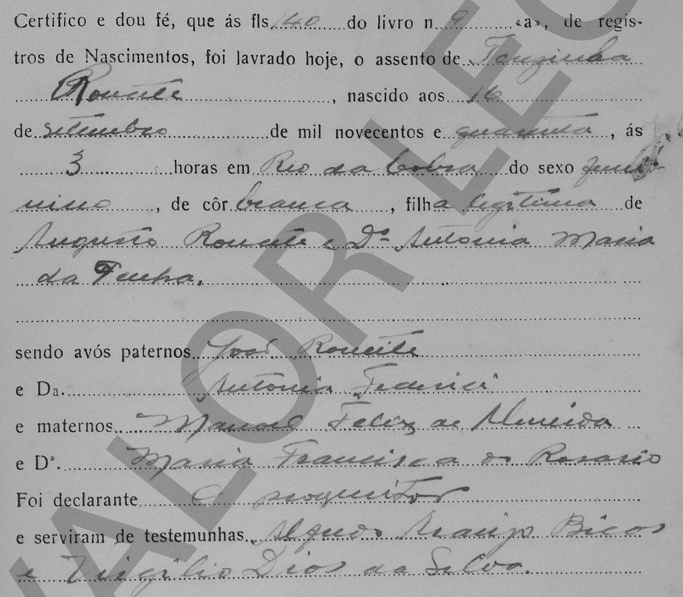 Certifico e dou fé, que ás fls. 140 do livro n. 9 «a», de regis-
tros de Nascimentos, foi lavrado hoje, o assento de
, nascido aos 16
de setembro de mil novecentos e quarenta, ás
3 horas em Rio da Cobra do sexo femi-
nino, de côr branca, filha legitima de
Augusto e Dª Antonia Maria
da Penha.
sendo avós paternos José
e Da. Antonia Federici
e maternos Manoel Felix de Almeida
e Dª. Maria Francisca do Rosario
Foi declarante O progenitor
e serviram de testemunhas Araujo
e Virgilio Dias da Silva.
VALOR LEG